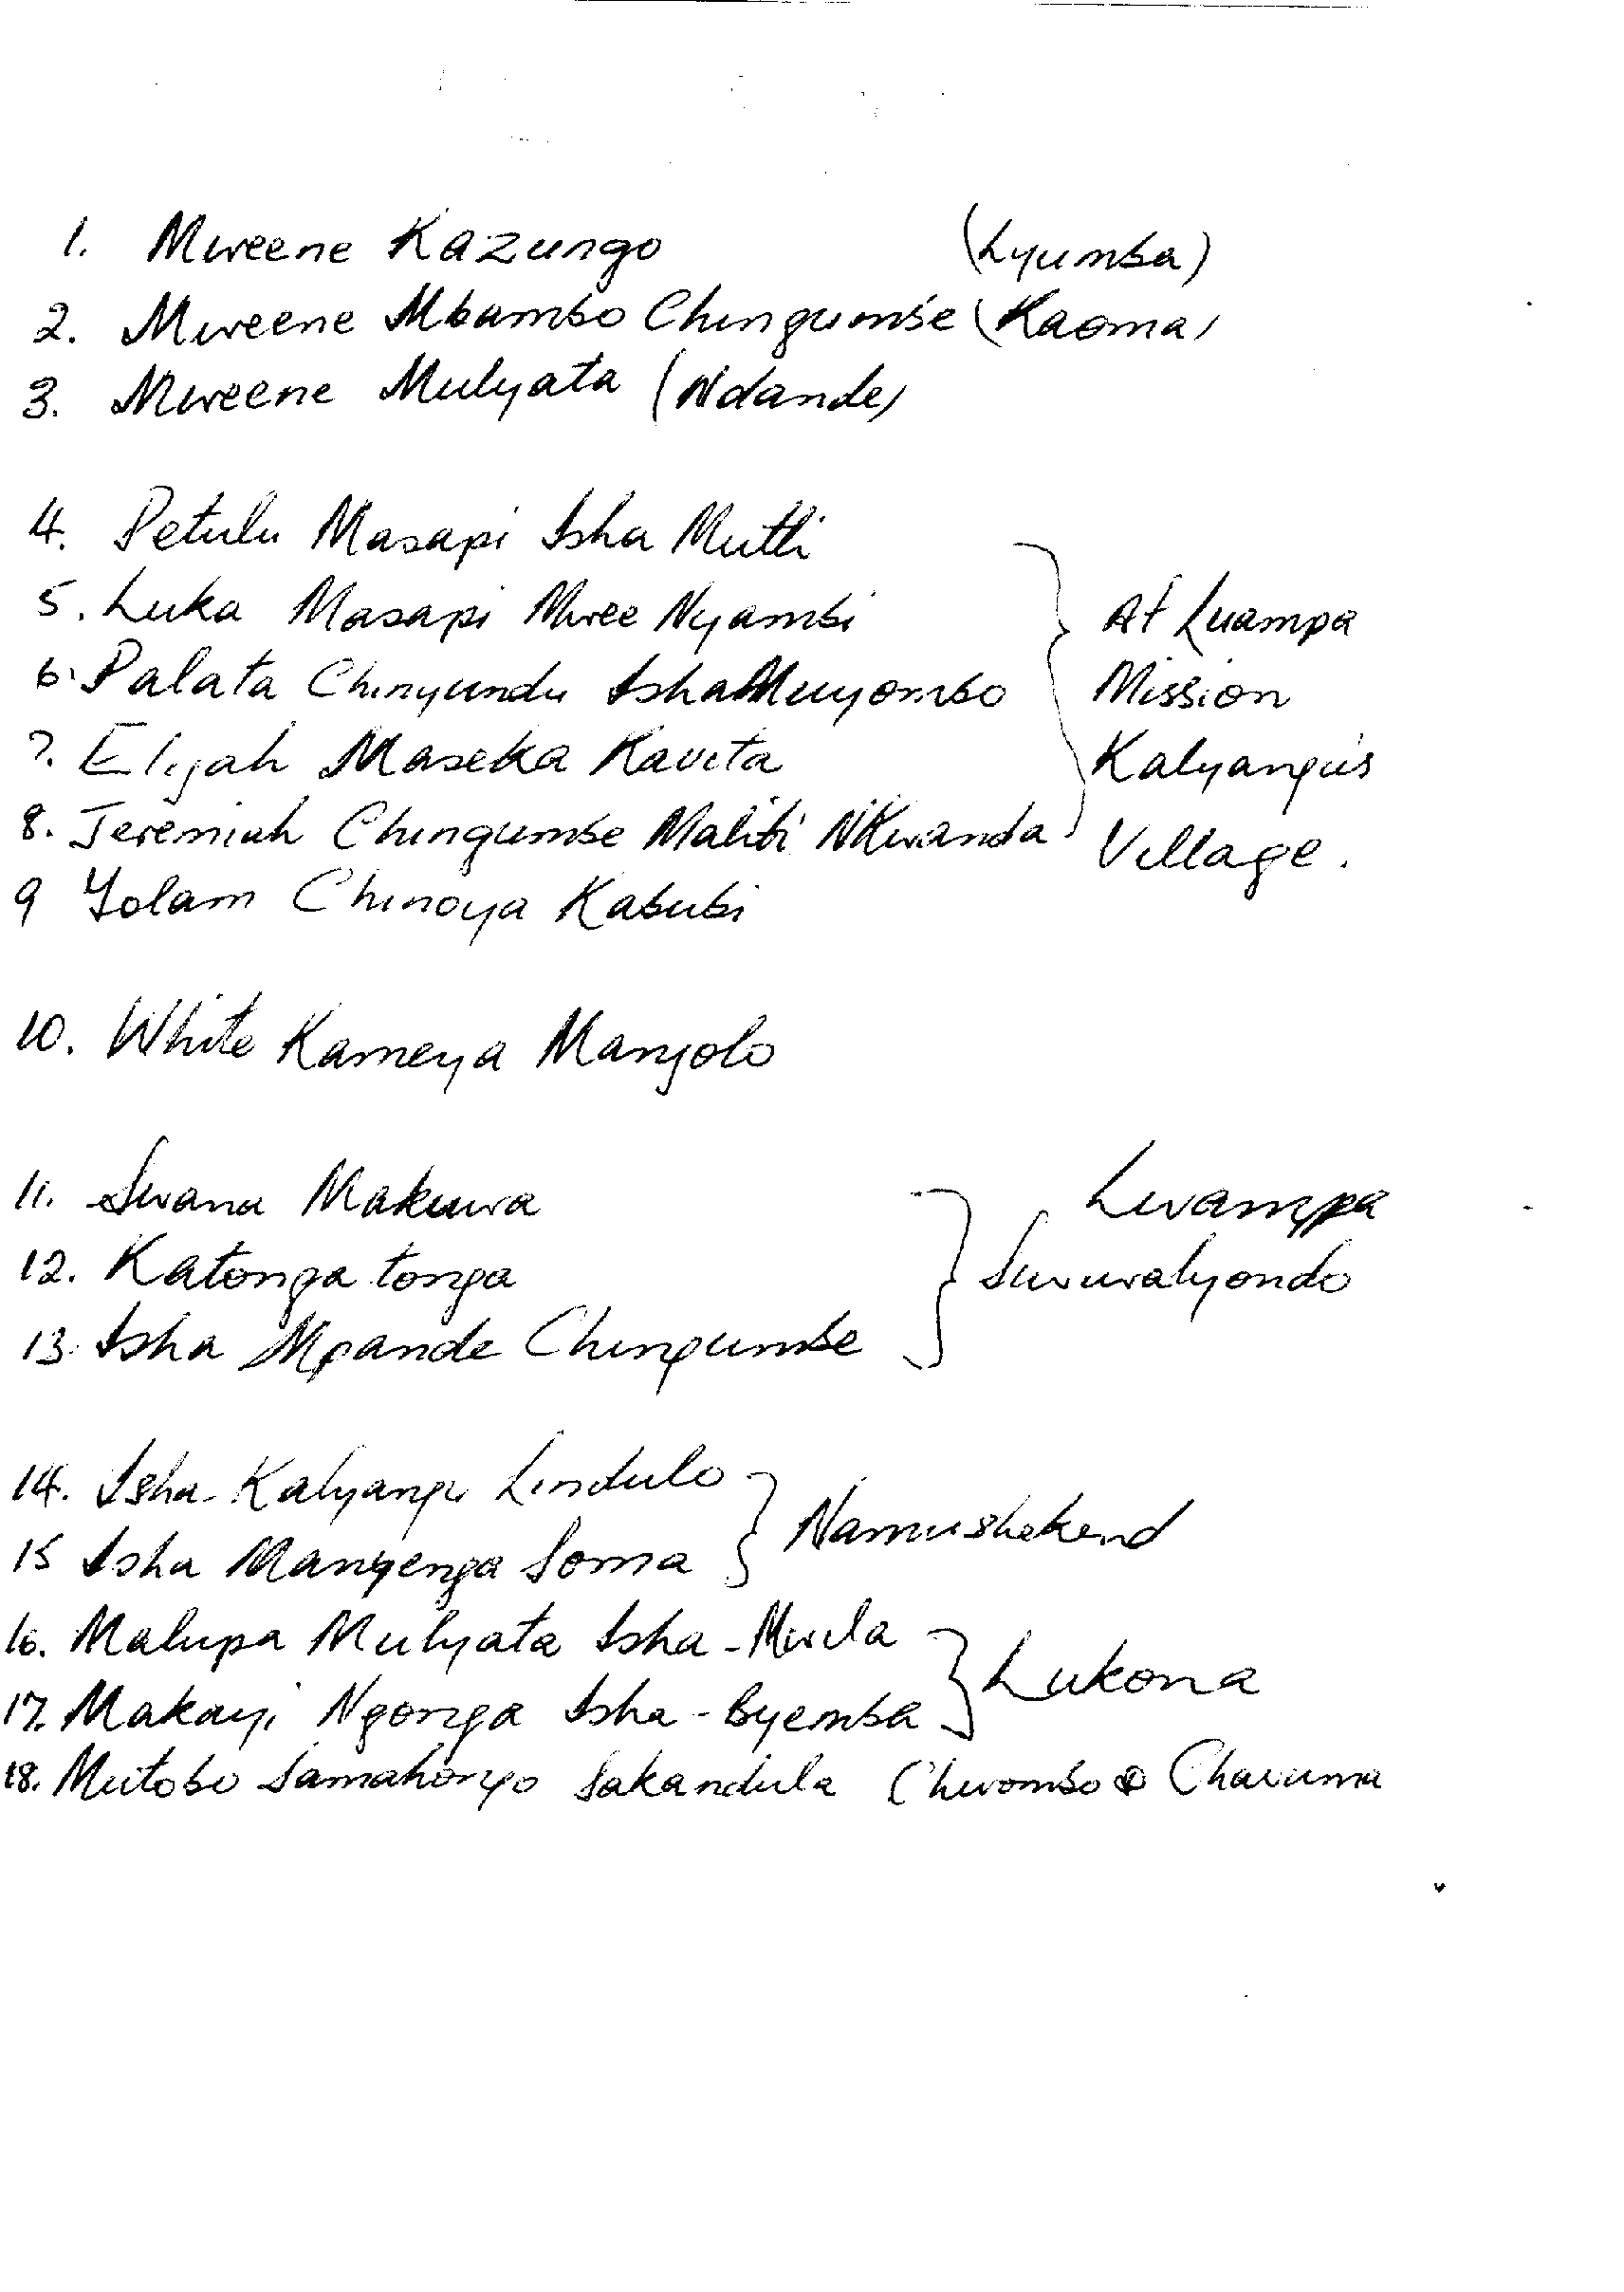 1. Mweene Kazungo (Lyumba)
2. Mweene Mbambo Chingumbe (Kaoma)
3. Mweene Mulyata (Ndande)
4. Petulu Masapi Isha Mutti
5. Luka Masapi Mwee Nyambi
6. Palata Chinyundu Isha Muyombo
7. Elijah Maseka Kavita
8. Jeremiah Chingumbe Maliti NKwanda
9 Yolam Chinoya Kabubi
At Luampa
Mission
Kalyangu's
Village.
10. White Kameya Manjolo
11. Swana Makuwa
12. Katonga tonga
13. Isha Mpande Chingumbe
Lwampa
Suwuwalyondo
14. Isha-Kalyangu Lindulo
15 Isha Manyenga Soma
Namushekend
16. Malupa Mulyata Isha-Mwila
17. Makayi Ngonga Isha-Byemba
Lukona
18. Mutobo Samahongo Sakandula Chivombo Chavuma